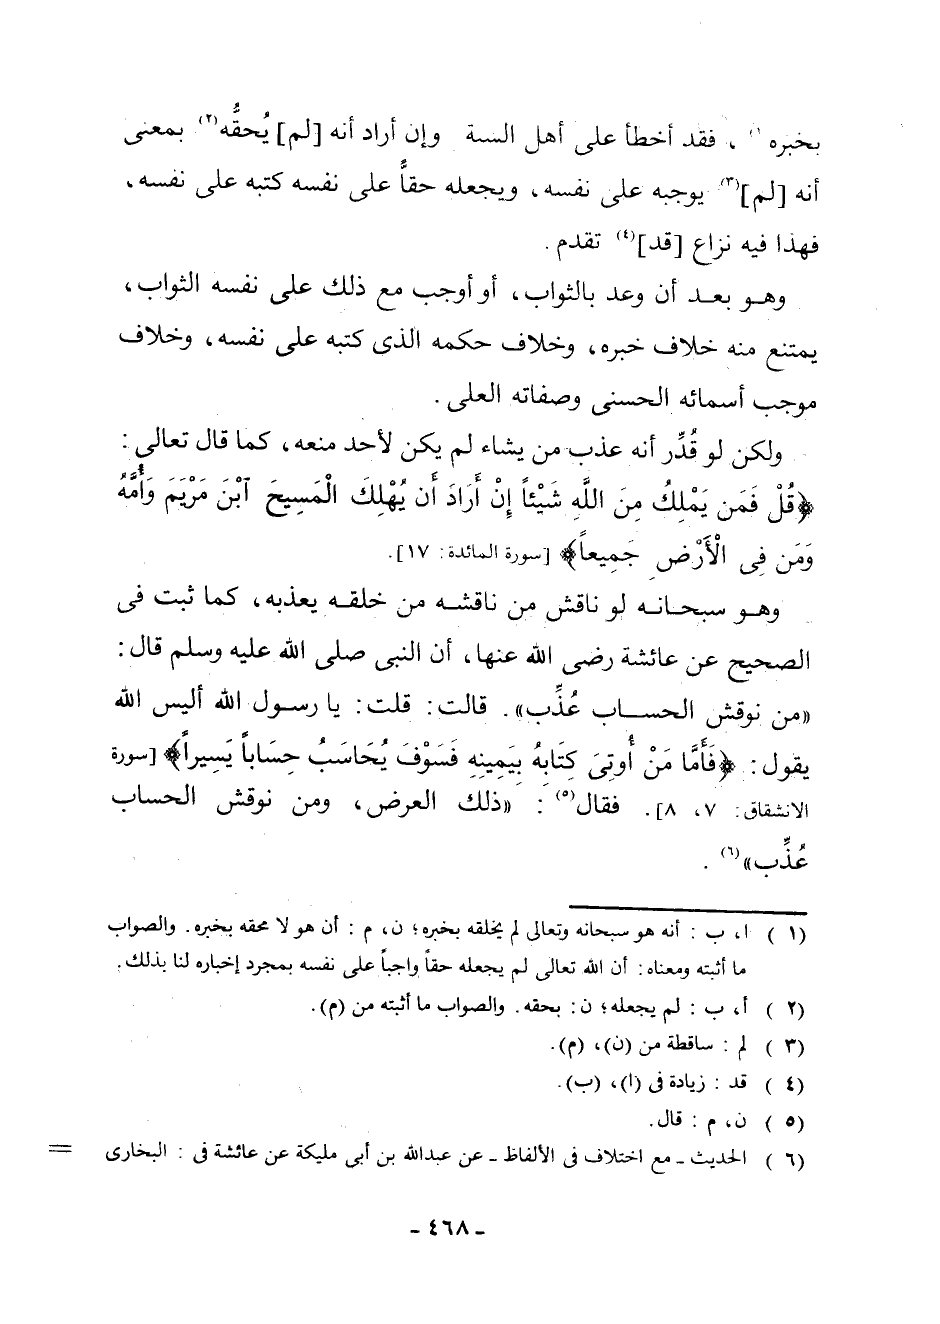 بخبره (١)، فقد أخطأ على أهل السنة وإن أراد أنه [لم] يُحقُّه(٢) بمعنى
أنه [لم](٣) يوجبه على نفسه، ويجعله حقاًّ على نفسه كتبه على نفسه،
فهذا فيه نزاع [قد](٤) تقدم.
وهو بعد أن وعد بالثواب، أو أوجب مع ذلك على نفسه الثواب،
يمتنع منه خلاف خبره، وخلاف حكمه الذى كتبه على نفسه، وخلاف
موجب أسمائه الحسنى وصفاته العلى.
ولكن لو قُدِّر أنه عذب من يشاء لم يكن لأحد منعه، كما قال تعالى:
﴿قُلْ فَمَن يَمْلِكُ مِنَ اللَّهِ شَيْئاً إِنْ أَرَادَ أَن يُهْلِكَ الْمَسِيحَ ابْنَ مَرْيَمَ وَأُمَّهُ
وَمَن فِى الْأَرْضِ جَمِيعاً﴾ [سورة المائدة: ١٧].
وهو سبحانه لو ناقش من ناقشه من خلقه يعذبه، كما ثبت فى
الصحيح عن عائشة رضى الله عنها، أن النبى صلى الله عليه وسلم قال:
«من نوقش الحساب عُذِّب». قالت: قلت: يا رسول الله أليس الله
يقول: ﴿فَأَمَّا مَنْ أُوتِىَ كِتَابَهُ بِيَمِينِهِ فَسَوْفَ يُحَاسَبُ حِسَاباً يَسِيراً﴾ [سورة
الانشقاق: ٧، ٨]. فقال(٥): «ذلك العرض، ومن نوقش الحساب
عُذِّب»(٦).
(١) ا، ب: أنه هو سبحانه وتعالى لم يخلقه بخبره؛ ن، م: أن هو لا محقه بخبره. والصواب
ما أثبته ومعناه: أن الله تعالى لم يجعله حقاً واجباً على نفسه بمجرد إخباره لنا بذلك.
(٢) أ، ب: لم يجعله؛ ن: بحقه. والصواب ما أثبته من (م).
(٣) لم: ساقطة من (ن)، (م).
(٤) قد: زيادة فى (ا)، (ب).
(٥) ن، م: قال.
(٦) الحديث ـ مع اختلاف فى الألفاظ ـ عن عبدالله بن أبى مليكة عن عائشة فى: البخارى =
- ٤٦٨ -